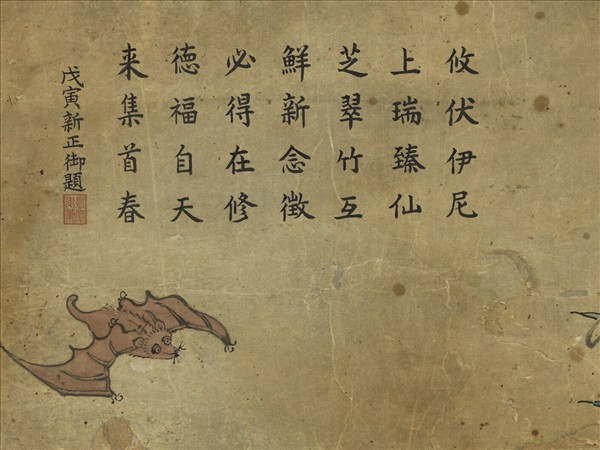 攸伏伊尼
上瑞臻仙
芝翠竹互
鮮新念徵
必得在修
德福自天
来集首春
戊寅新正御題